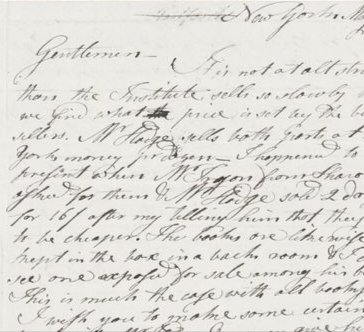 New York, M
Gentlemen —
It is not at all str
than the Institute sells so slowly
we find what price is set by the b
sellers. Mr Hodge sells both parts a
York money pr dozen — I happened to
present when Mr from Sharo
asked for them & Mr Hodge sold 2 do
for 16/ after my telling him that they
to be cheaper. The books are likewise
kept in the box in a back room & I
see one exposed for sale among his b
This is much the case with all books
I wish you to make some certain
give